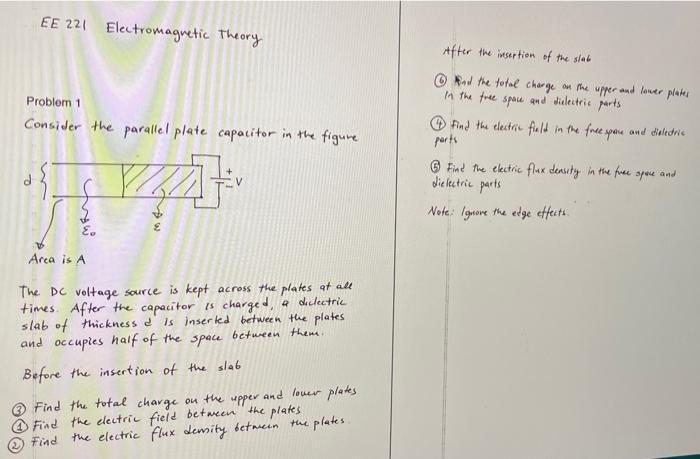 EE 221 Electromagnetic Theory
Problem 1
Consider the parallel plate capacitor in the figure
d
+
-
V
ε₀
ε
Area is A
The DC voltage source is kept across the plates at all
times. After the capacitor is charged, a dielectric
slab of thickness d is inserted between the plates
and occupies half of the space between them.
Before the insertion of the slab
③ Find the total charge on the upper and lower plates
① Find the electric field between the plates
② Find the electric flux density between the plates.
After the insertion of the slab
⑥ Find the total charge on the upper and lower plates
In the free space and dielectric parts
④ Find the electric field in the free space and dielectric
parts
⑤ Find the electric flux density in the free space and
dielectric parts
Note: Ignore the edge effects.